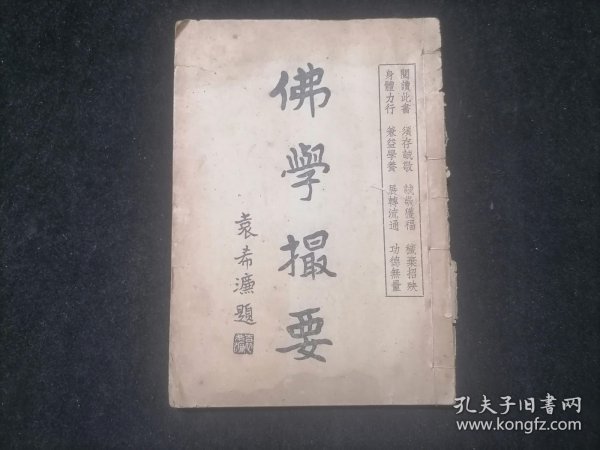 閱讀此書 須存誠敬 誠敬獲福 穢棄招殃
身體力行 兼益學養 展轉流通 功德無量
佛學撮要
袁希濂題
孔夫子旧书网
www.kongfz.com